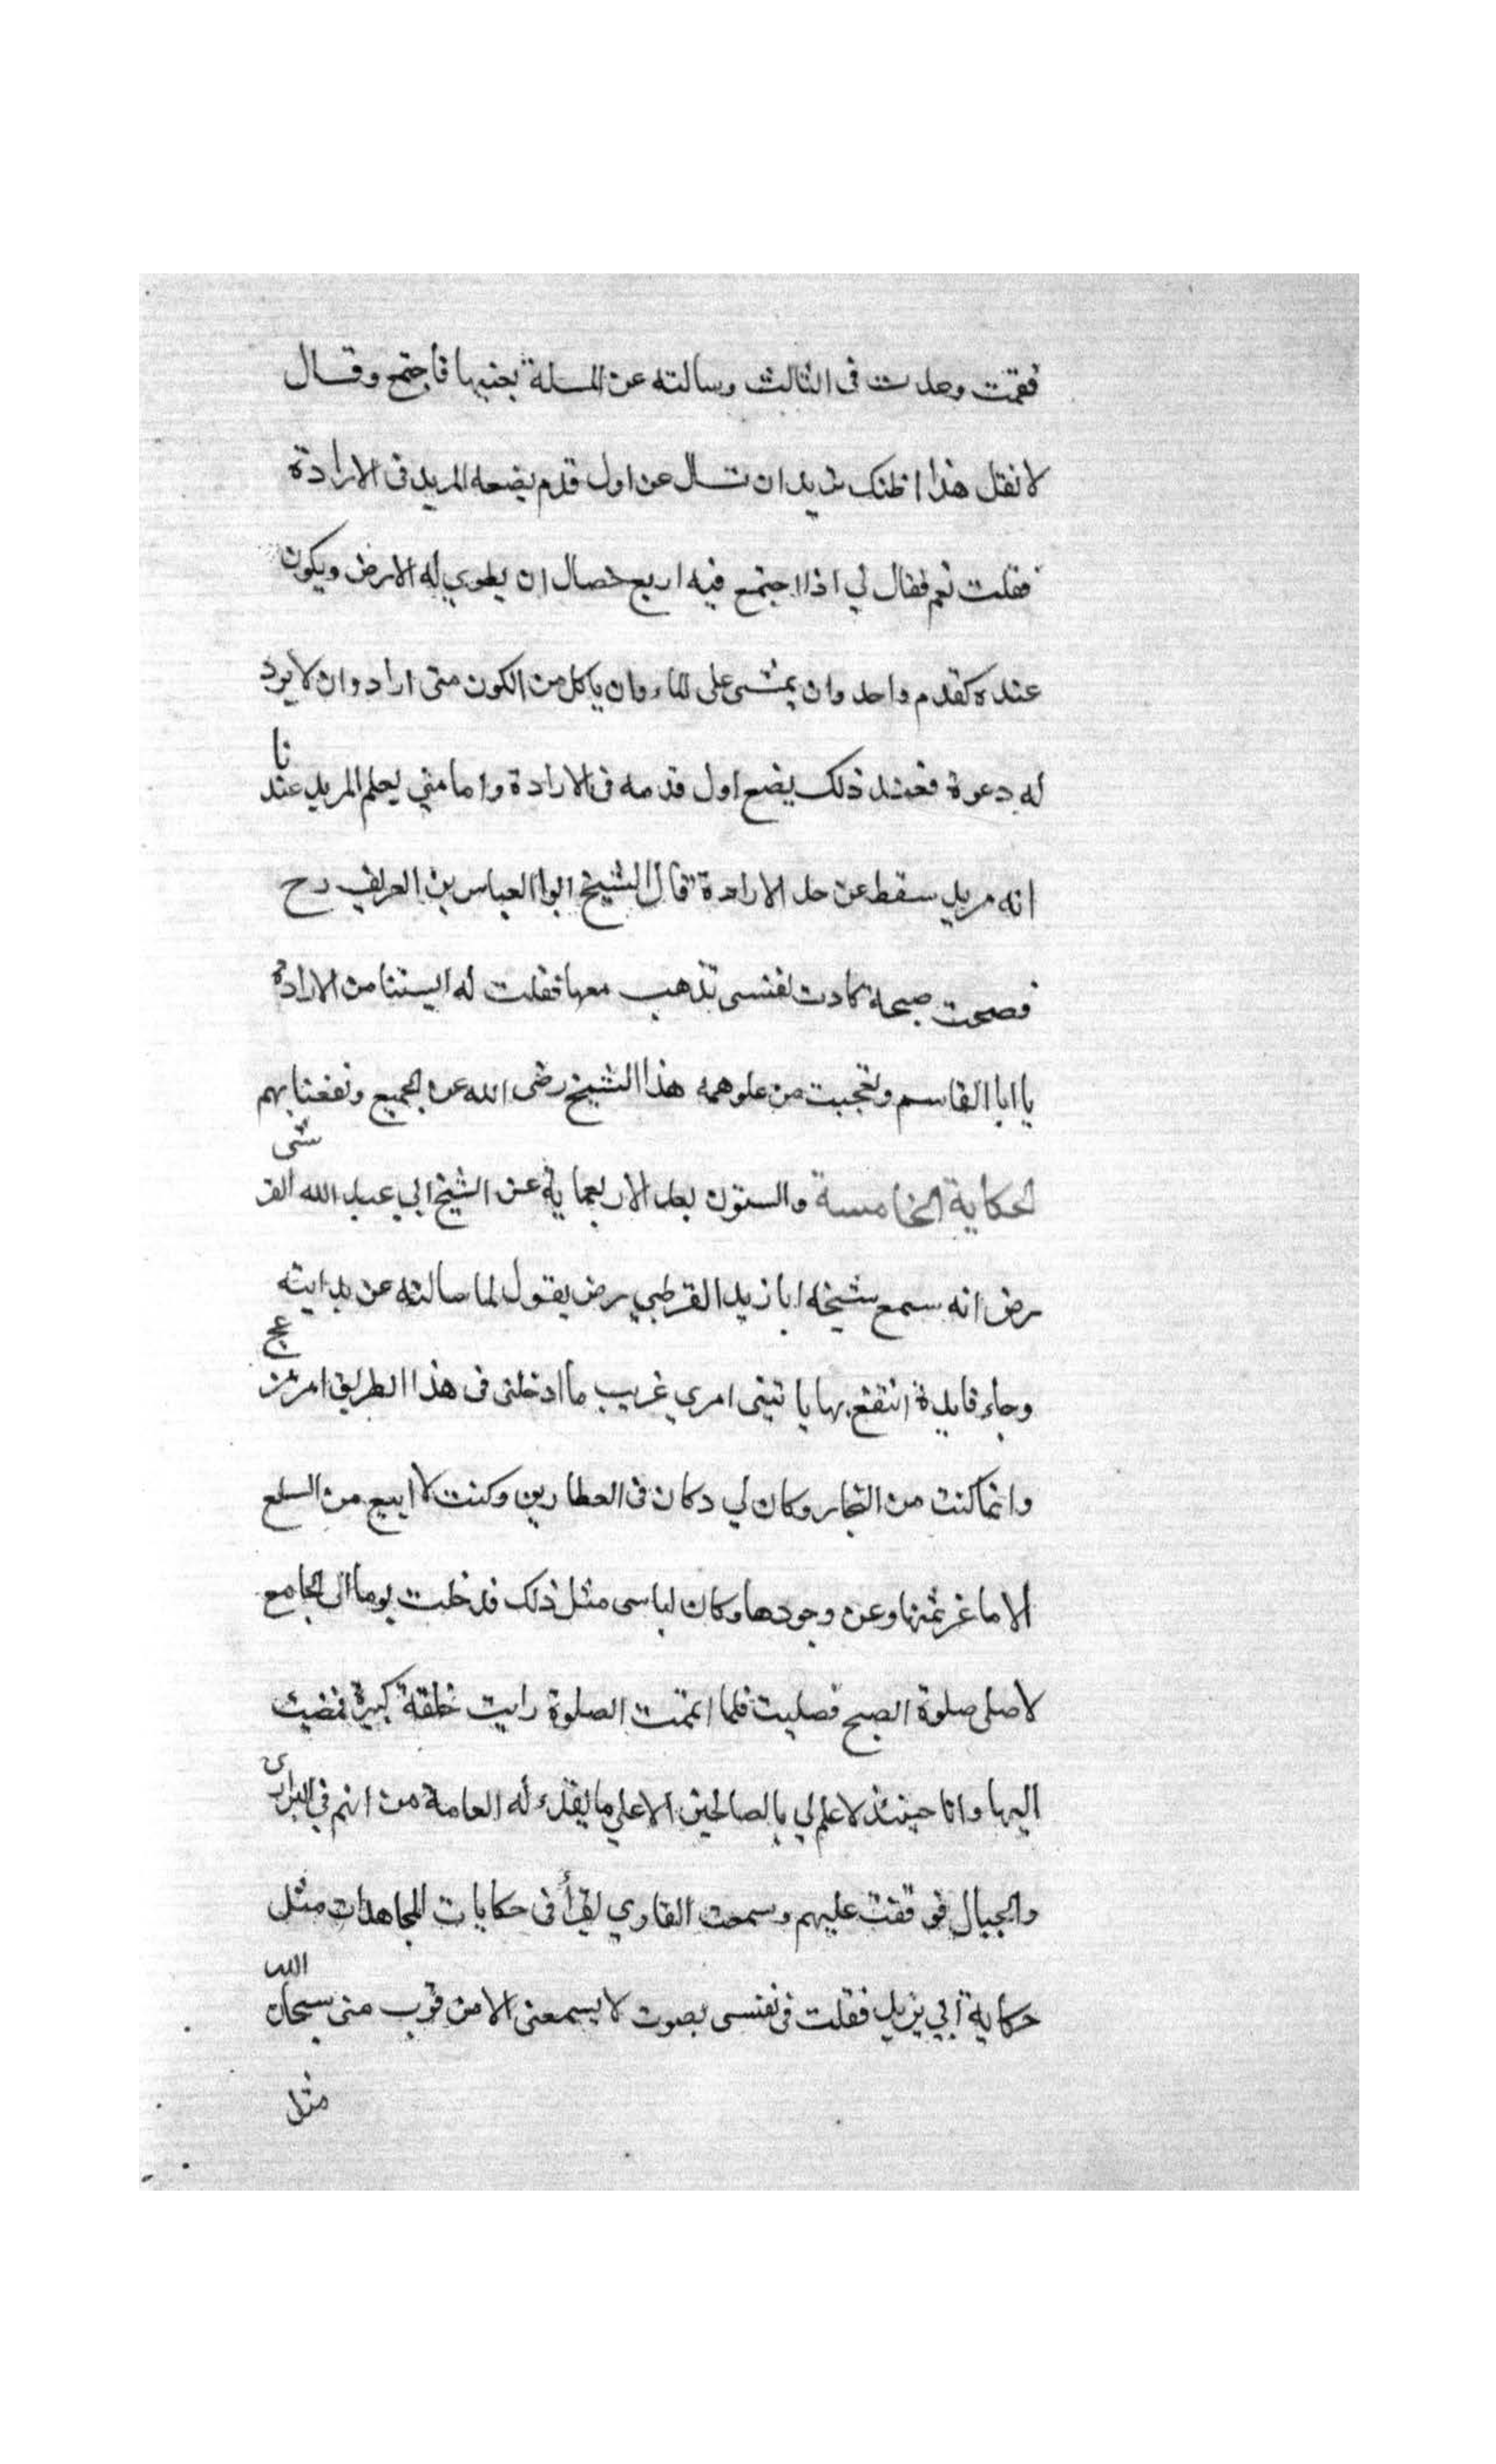 فقمت وعدت فى الثالث وسالته عن المسلة بجنبها فاجتمع وقال
لا تقل هذا اظنك تريد ان تسال عن اول قدم يضعه المريد فى الارادة
فقلت نعم فقال لي اذا اجتمع فيه اربع خصال ان يطوي له الارض ويكون
عنده كقدم واحد وان يمشى على الماء وان ياكل من الكون متى اراد وان لا يرد
له دعوة فعند ذلك يضع اول قدمه فى الارادة واما متي يعلم المريد عندنا
انه مريد سقط عن حد الارادة قال الشيخ ابوا العباس بن العريف رح
فصحت صيحة كادت نفسى تذهب معها فقلت له ايستنا من الارادة
يا ابا القاسم وتعجبت من علو همه هذا الشيخ رضى الله عن الجميع ونفعنا بهم
الحكاية الخامسة والستون بعد الاربعماية عن الشيخ ابي عبد الله القرشى
رض انه سمع شيخه ابا زيد القرطبي رض يقول لما سالته عن بدايته
وجاء فايدة انتفع بها يا بنى امري غريب ما ادخلنى فى هذا الطريق امر مزعج
وانما كنت من التجار وكان لي دكان فى العطارين وكنت لا ابيع من السلع
الا ما غر ثمنها وعن وجودها وكان لباسى مثل ذلك فدخلت يوما الى الجامع
لاصلى صلوة الصبح فصليت فلما اتممت الصلوة رايت خلقة كبيرة فمضيت
اليها وانا حينئذ لا علم لي بالصالحين الا علي ما يقذء له العامة من انهم في البرارى
والجبال فوقفت عليهم وسمعت القاري يقرأ فى حكايات المجاهدات مثل
حكاية ابي يزيد فقلت فى نفسى بصوت لا يسمعنى الا من قرب منى سبحان الله
مثل